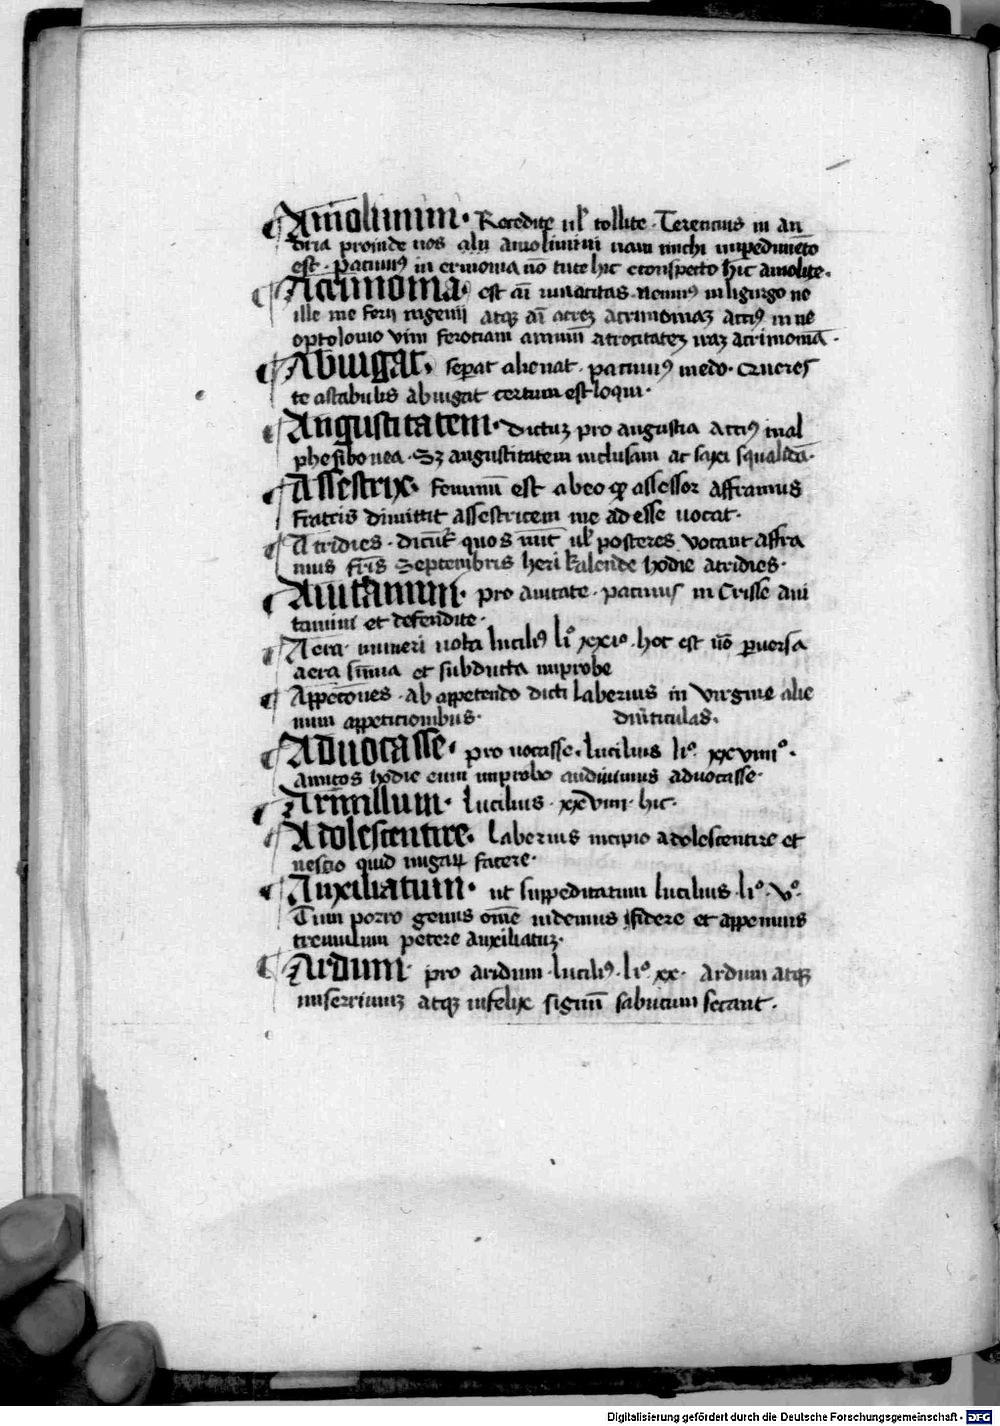 Amolimini· Recedite ul' tollite· Terencius in an
dria proinde uos alii amolimini nam michi impedimēto
est· pacuuiꝰ in ermiona nō tute hīc e conspecto hīc amolite·
Acrimonia· est aī uiuacitas· neuiuꝰ in ligurgo ne
ille me ferij ingenij atqꝫ aī acreꝫ acrimoniaꝫ acciꝰ in ne
optolomo vim ferociam animū atrocitateꝫ iraꝫ acrimoniā·
Abiugat· seperat alienat· pacuuiꝰ medo· crucres
te astabulis abiugat certum est loqui·
Angustitatem· Dictuꝫ pro angustia acciꝰ in al
phesibonea· Sꝫ angustitatem inclusam ac saxi squalida·
Assestrix· feminū est ab eo qꝫ assessor affranius
fratris dimittit assestricem me adesse uocat·
Atridies· dicūt̄ quos nūt ul' posteres vocant affra
nius fr̄is Septembris heri kalende hodie atridies·
Auitanium· pro auitate· pacuuiꝰ in Crisse aui
tamini et defendite·
Aera· numeri nota lucilꝰ liº xxiº· hoc est nō puersa
aera sūma et subducta improbe
Appetones· ab appetendo dicti laberius in virgine alie
num appeticionibus· diuticulas·
Aduocasse· pro uocasse· lucilius liº xxviiiº·
amicos hodie cum improbo audiuimus aduocasse·
Armillum· lucilius· xxviiii· hic·
Adolescentire· laberius incipio adolescentire et
nescio quid nugaꝝ facere·
Auxiliatum· ut suppeditatum lucilius· liº· vº·
Tum porro genus ōme uidemus fidere et appennis
tremulum petere auxiliatuꝫ·
Ardum· pro aridum· lucilꝰ· liº xx· ardum atqꝫ
miserrimuꝫ atqꝫ infelix signū sabucum secant·
Digitalisierung gefördert durch die Deutsche Forschungsgemeinschaft · DFG